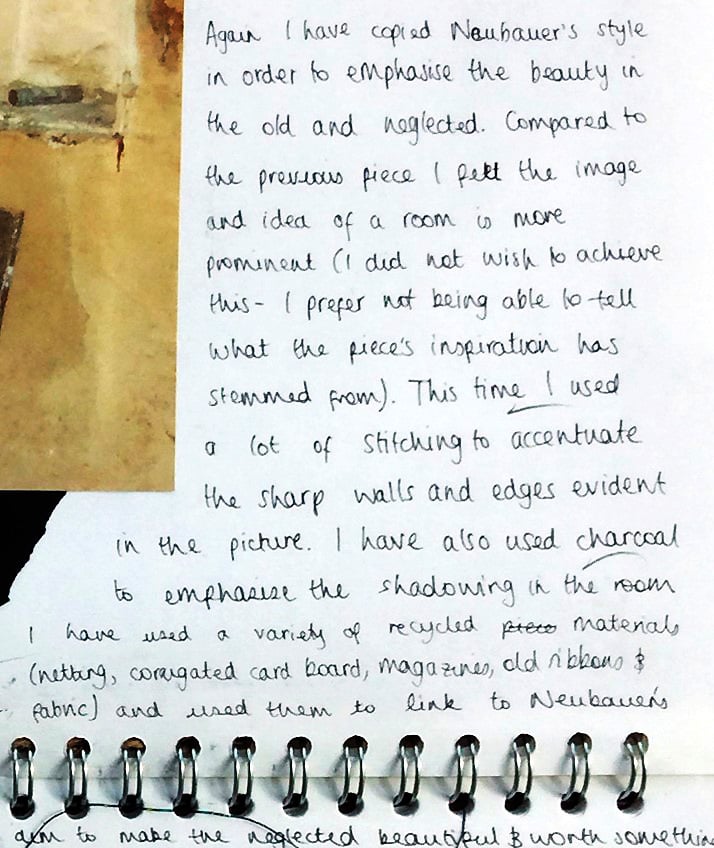 Again I have copied Neubauer's style
in order to emphasise the beauty in
the old and neglected. Compared to
the previous piece I felt the image
and idea of a room is more
prominent (I did not wish to achieve
this - I prefer not being able to tell
what the piece's inspiration has
stemmed from). This time I used
a lot of stitching to accentuate
the sharp walls and edges evident
in the picture. I have also used charcoal
to emphasise the shadowing in the room
I have used a variety of recycled piece materials
(netting, corrugated card board, magazines, old ribbons &
fabric) and used them to link to Neubauer's
aim to make the neglected beautiful & worth something